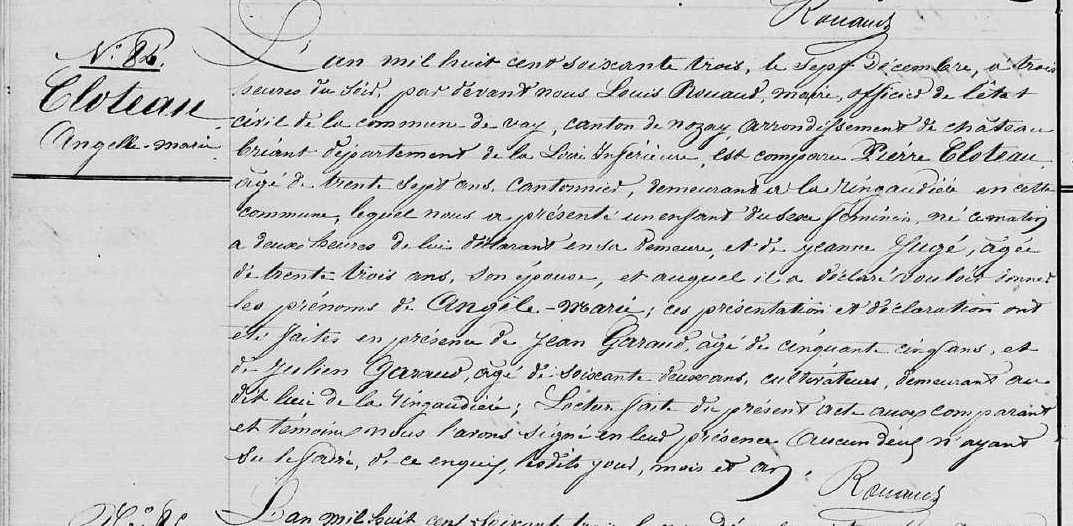 Rouaud
N°. 85.
Cloteau
Angelle-marie
L'an mil huit cent soixante trois, le sept décembre, a trois
heures du soir, par devant nous Louis Rouaud, maire, officier de l'état
civil de la commune de vay, canton de nozay arrondissement de château
briant département de la Loire Inférieure, est comparu Pierre Cloteau
agé de trente sept ans, cantonnier, demeurant a la Ringaudiée en cette
commune, lequel nous a présenté un enfant du sexe féminin, né ce matin
a deux heures de lui déclarant en sa demeure, et de jeanne Jugé, agée
de trente trois ans, son épouse, et auquel il a déclaré vouloir donner
les prénoms de Angèle-Marie; ces présentation et déclaration ont
été faites en présence de Jean Garaud, agé de cinquante cinq ans, et
de Julien Garaud, agé de soixante deux ans, cultivateurs, demeurant au
dit lieu de la Ringaudiée; Lecture faite du présent acte aux comparant
et témoins nous l'avons signé en leur présence aucun deux n'ayant
su le faire, de ce enquis, lesdits jour, mois et an.
Rouaud
L'an mil huit cent soixante trois le